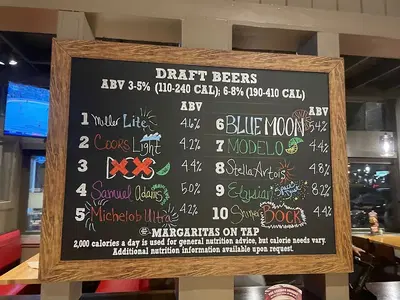 DRAFT BEERS
ABV 3-5% (110-240 CAL); 6-8% (190-410 CAL)
ABV
1 Miller Lite 4.6%
2 Coors Light 4.2%
3 XX 4.4%
4 Samuel Adams 5.0%
5 Michelob Ultra 4.2%
ABV
6 BLUE MOON 5.4%
7 MODELO 4.4%
8 Stella Artois 4.8%
9 Elysian Space Dust 8.2%
10 Shiner BOCK 4.4%
MARGARITAS ON TAP
2,000 calories a day is used for general nutrition advice, but calorie needs vary.
Additional nutrition information available upon request.